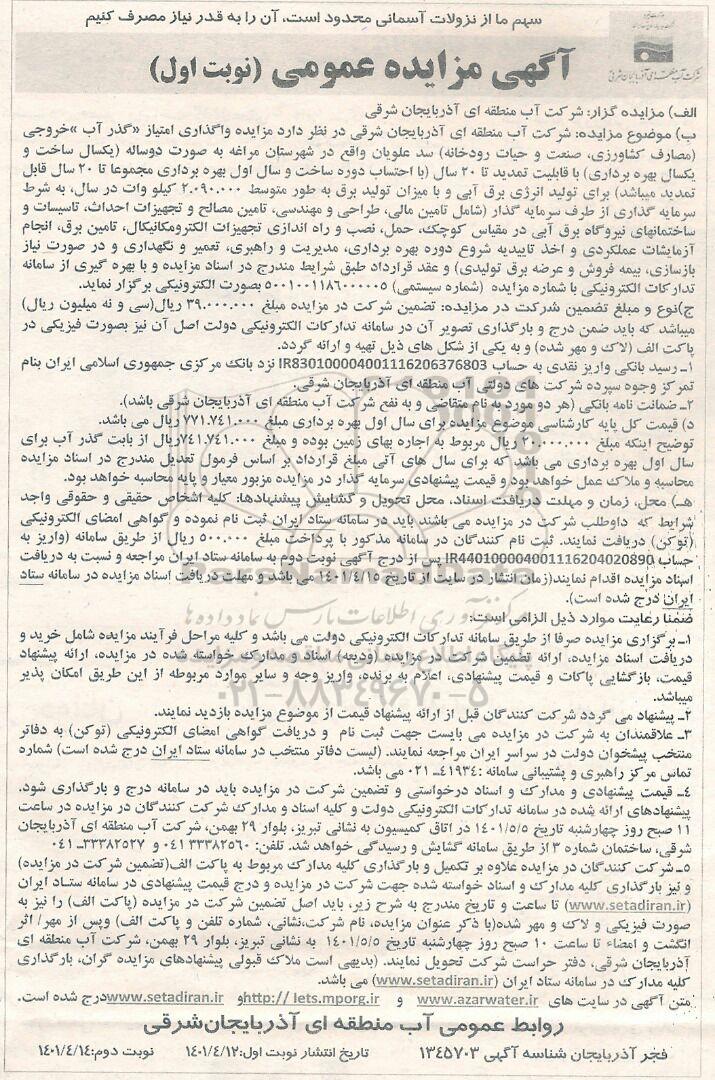 سهم ما از نزولات آسمانی محدود است، آن را به قدر نیاز مصرف کنیم
شرکت آب منطقه‌ای آذربایجان شرقی
آگهی مزایده عمومی (نوبت اول)
الف) مزایده گزار: شرکت آب منطقه ای آذربایجان شرقی
ب) موضوع مزایده: شرکت آب منطقه ای آذربایجان شرقی در نظر دارد مزایده واگذاری امتیاز «گذر آب »خروجی
(مصارف کشاورزی، صنعت و حیات رودخانه) سد علویان واقع در شهرستان مراغه به صورت دوساله (یکسال ساخت و
یکسال بهره برداری) با قابلیت تمدید تا ۲۰ سال (با احتساب دوره ساخت و سال اول بهره برداری مجموعا تا ۲۰ سال قابل
تمدید میباشد) برای تولید انرژی برق آبی و با میزان تولید برق به طور متوسط ۲.۰۹۰.۰۰۰ کیلو وات در سال، به شرط
سرمایه گذاری از طرف سرمایه گذار (شامل تامین مالی، طراحی و مهندسی، تامین مصالح و تجهیزات احداث، تاسیسات و
ساختمانهای نیروگاه برق آبی در مقیاس کوچک، حمل، نصب و راه اندازی تجهیزات الکترومکانیکال، تامین برق، انجام
آزمایشات عملکردی و اخذ تاییدیه شروع دوره بهره برداری، مدیریت و راهبری، تعمیر و نگهداری و در صورت نیاز
بازسازی، بیمه فروش و عرضه برق تولیدی) و عقد قرارداد طبق شرایط مندرج در اسناد مزایده و با بهره گیری از سامانه
تدارکات الکترونیکی با شماره مزایده (شماره سیستمی) ۵۰۰۱۰۰۱۱۸۶۰۰۰۰۰۵ بصورت الکترونیکی برگزار نماید.
ج)نوع و مبلغ تضمین شرکت در مزایده: تضمین شرکت در مزایده مبلغ ۳۹.۰۰۰.۰۰۰ ریال(سی و نه میلیون ریال)
میباشد که باید ضمن درج و بارگذاری تصویر آن در سامانه تدارکات الکترونیکی دولت اصل آن نیز بصورت فیزیکی در
پاکت الف (لاک و مهر شده) و به یکی از شکل های ذیل تهیه و ارائه گردد.
۱ـ رسید بانکی واریز نقدی به حساب IR830100004001116206376803 نزد بانک مرکزی جمهوری اسلامی ایران بنام
تمرکز وجوه سپرده شرکت های دولتی آب منطقه ای آذربایجان شرقی.
۲ـ ضمانت نامه بانکی (هر دو مورد به نام متقاضی و به نفع شرکت آب منطقه ای آذربایجان شرقی باشد).
د) قیمت کل پایه کارشناسی موضوع مزایده برای سال اول بهره برداری مبلغ ۷۷۱.۷۴۱.۰۰۰ ریال می باشد.
توضیح اینکه مبلغ ۳۰.۰۰۰.۰۰۰ ریال مربوط به اجاره بهای زمین بوده و مبلغ ۷۴۱.۷۴۱.۰۰۰ریال از بابت گذر آب برای
سال اول بهره برداری می باشد که برای سال های آتی مبلغ قرارداد بر اساس فرمول تعدیل مندرج در اسناد مزایده
محاسبه و ملاک عمل خواهد بود و قیمت پیشنهادی سرمایه گذار در مزایده مزبور معیار و پایه محاسبه خواهد بود.
هـ) محل، زمان و مهلت دریافت اسناد، محل تحویل و گشایش پیشنهادها: کلیه اشخاص حقیقی و حقوقی واجد
شرایط که داوطلب شرکت در مزایده می باشند باید در سامانه ستاد ایران ثبت نام نموده و گواهی امضای الکترونیکی
(توکن) دریافت نمایند. ثبت نام کنندگان در سامانه مذکور با پرداخت مبلغ ۵۰۰.۰۰۰ ریال از طریق سامانه (واریز به
حساب IR440100004001116204020890) پس از درج آگهی نوبت دوم به سامانه ستاد ایران مراجعه و نسبت به دریافت
اسناد مزایده اقدام نمایند(زمان انتشار در سایت از تاریخ ۱۴۰۱/۴/۱۵ می باشد و مهلت دریافت اسناد مزایده در سامانه ستاد
ایران درج شده است).
ضمنا رعایت موارد ذیل الزامی است:
۱ـ برگزاری مزایده صرفا از طریق سامانه تدارکات الکترونیکی دولت می باشد و کلیه مراحل فرآیند مزایده شامل خرید و
دریافت اسناد مزایده، ارائه تضمین شرکت در مزایده (ودیعه) اسناد و مدارک خواسته شده در مزایده، ارائه پیشنهاد
قیمت، بازگشایی پاکات و قیمت پیشنهادی، اعلام به برنده، واریز وجه و سایر موارد مربوطه از این طریق امکان پذیر
میباشد.
۲ـ پیشنهاد می گردد شرکت کنندگان قبل از ارائه پیشنهاد قیمت از موضوع مزایده بازدید نمایند.
۳ـ علاقمندان به شرکت در مزایده می بایست جهت ثبت نام و دریافت گواهی امضای الکترونیکی (توکن) به دفاتر
منتخب پیشخوان دولت در سراسر ایران مراجعه نمایند. (لیست دفاتر منتخب در سامانه ستاد ایران درج شده است) شماره
تماس مرکز راهبری و پشتیبانی سامانه :۴۱۹۳۴ـ ۰۲۱ می باشد.
۴ـ قیمت پیشنهادی و مدارک و اسناد درخواستی و تضمین شرکت در مزایده باید در سامانه درج و بارگذاری شود.
پیشنهادهای ارائه شده در سامانه تدارکات الکترونیکی دولت و کلیه اسناد و مدارک شرکت کنندگان در مزایده در ساعت
۱۱ صبح روز چهارشنبه تاریخ ۱۴۰۱/۵/۵ در اتاق کمیسیون به نشانی تبریز، بلوار ۲۹ بهمن، شرکت آب منطقه ای آذربایجان
شرقی، ساختمان شماره ۳ از طریق سامانه گشایش و رسیدگی خواهد شد. تلفن: ۳۳۳۸۲۵۶۰ ۰۴۱ و ۳۳۳۸۲۵۲۷ـ ۰۴۱
۵ـ شرکت کنندگان در مزایده علاوه بر تکمیل و بارگذاری کلیه مدارک مربوط به پاکت الف(تضمین شرکت در مزایده)
و نیز بارگذاری کلیه مدارک و اسناد خواسته شده جهت شرکت در مزایده و درج قیمت پیشنهادی در سامانه ستاد ایران
(www.setadiran.ir) تا ساعت و تاریخ مندرج به شرح زیر، باید اصل تضمین شرکت در مزایده (پاکت الف) را نیز به
صورت فیزیکی و لاک و مهر شده(با ذکر عنوان مزایده، نام شرکت،نشانی، شماره تلفن و پاکت الف) وپس از مهر/ اثر
انگشت و امضاء تا ساعت ۱۰ صبح روز چهارشنبه تاریخ ۱۴۰۱/۵/۵ به نشانی تبریز، بلوار ۲۹ بهمن، شرکت آب منطقه ای
آذربایجان شرقی، دفتر حراست شرکت تحویل نمایند. (بدیهی است ملاک قبولی پیشنهادهای مزایده گران، بارگذاری
کلیه مدارک در سامانه ستاد ایران (www.setadiran.ir) می باشد.
متن آگهی در سایت های www.azarwater.ir و http:// iets.mporg.ir و www.setadiran.ir درج شده است.
روابط عمومی آب منطقه ای آذربایجان‌شرقی
فجر آذربایجان شناسه آگهی ۱۳۴۵۷۰۳ تاریخ انتشار نوبت اول:۱۴۰۱/۴/۱۲ نوبت دوم:۱۴۰۱/۴/۱۴
ParsNamadData
مرکز فن‌آوری اطلاعات پارس نماد داده‌ها
۰۲۱-۸۸۳۴۹۶۷۰-۵